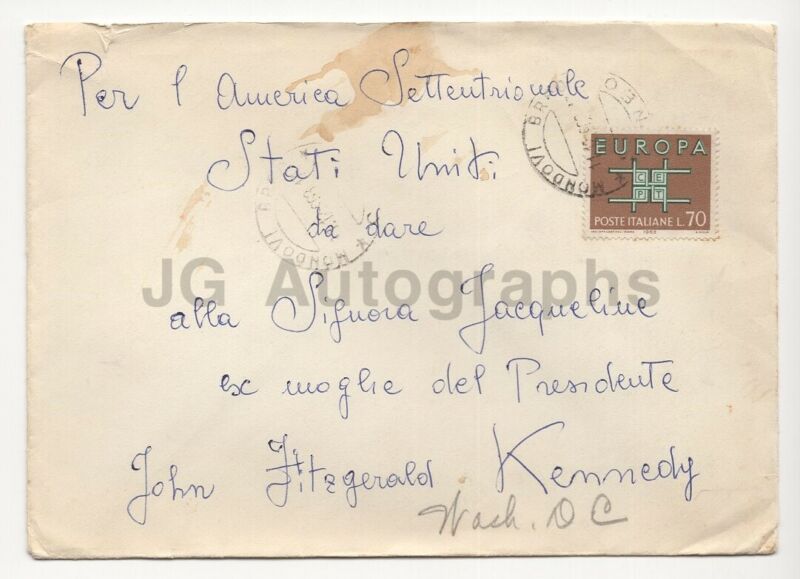 Per l'America Settentrionale
Stati Uniti
da dare
alla Signora Jacqueline
ex moglie del Presidente
John Fitzgerald Kennedy
Wash. D C
EUROPA
CEPT
POSTE ITALIANE L.70
1963
MONDOVI
MONDOVI
JG Autographs